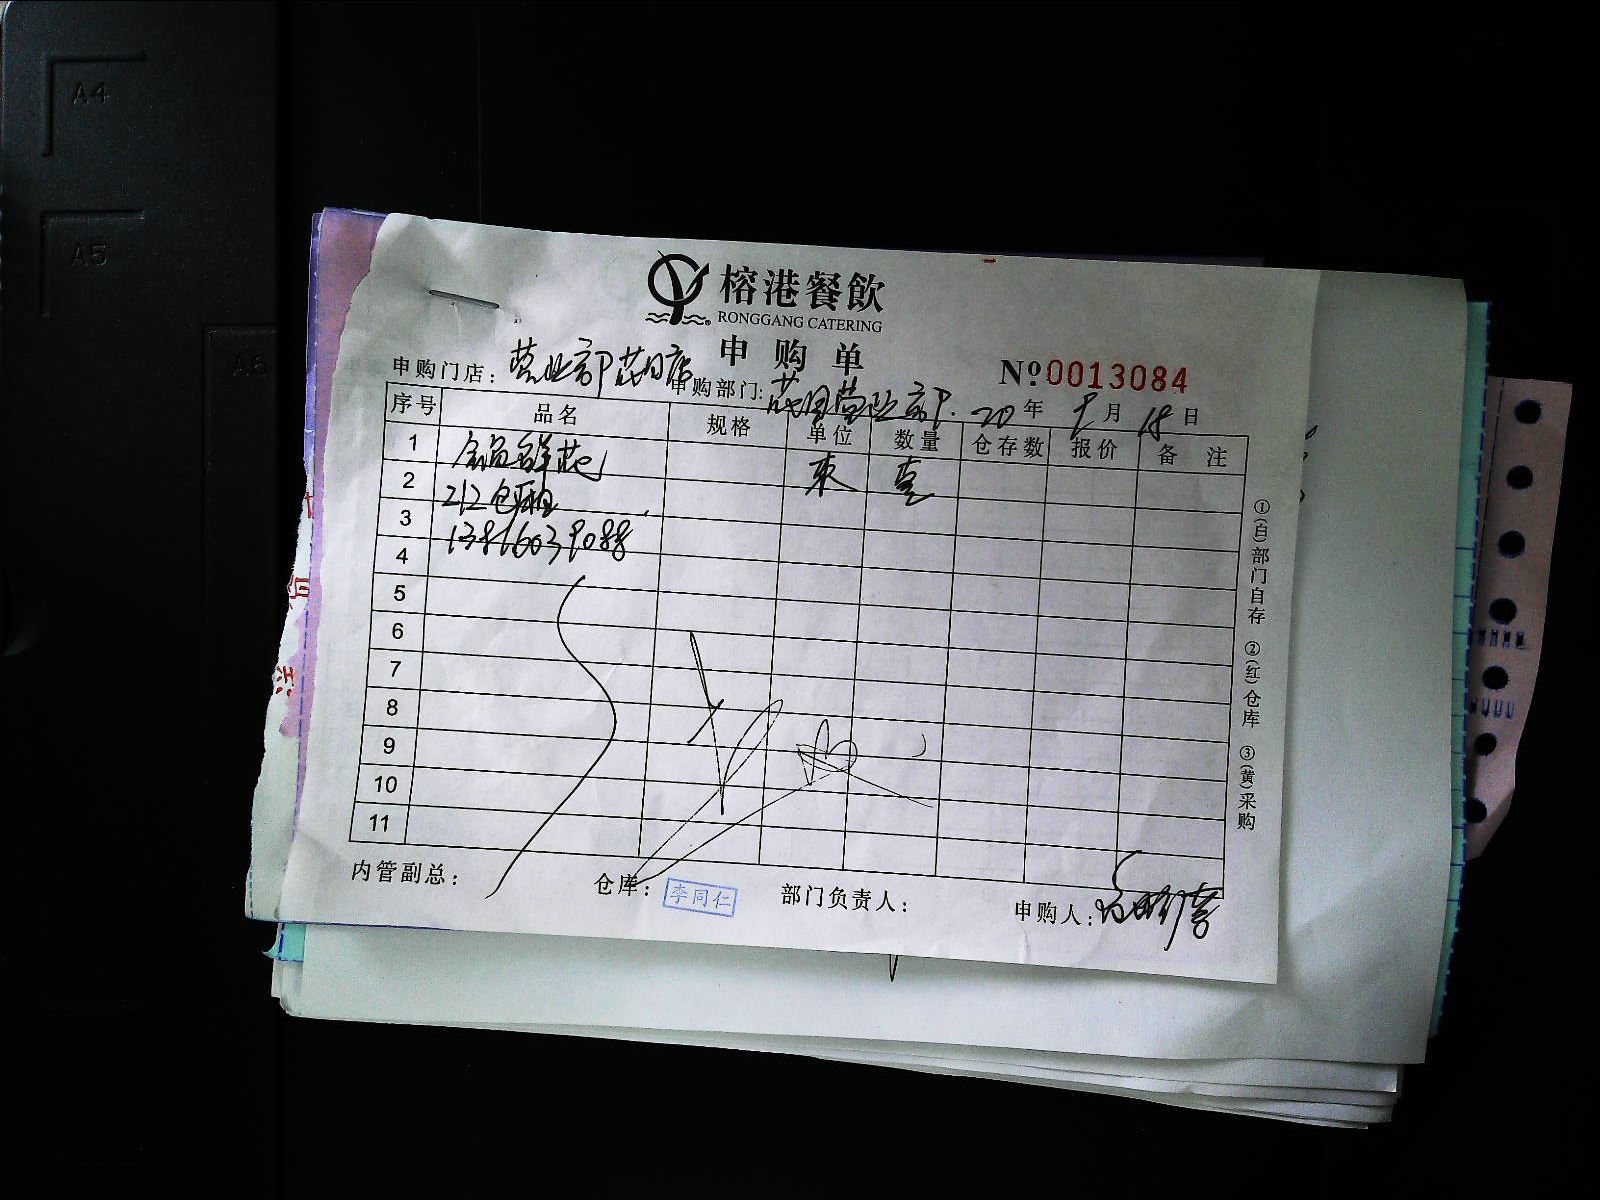 A4
A5
A6
榕港餐飲
RONGGANG CATERING
申购单
申购门店：营业部茂日店
№0013084
申购部门：茂日营业部 20年9月18日
序号 品名 规格 单位 数量 仓存数 报价 备注
1 鲜花 束 壹
2 212包厢
3 13816039088
4
5
6
7
8
9
10
11
内管副总： 仓库：李同仁 部门负责人： 申购人：
①(白)部门自存 ②(红)仓库 ③(黄)采购